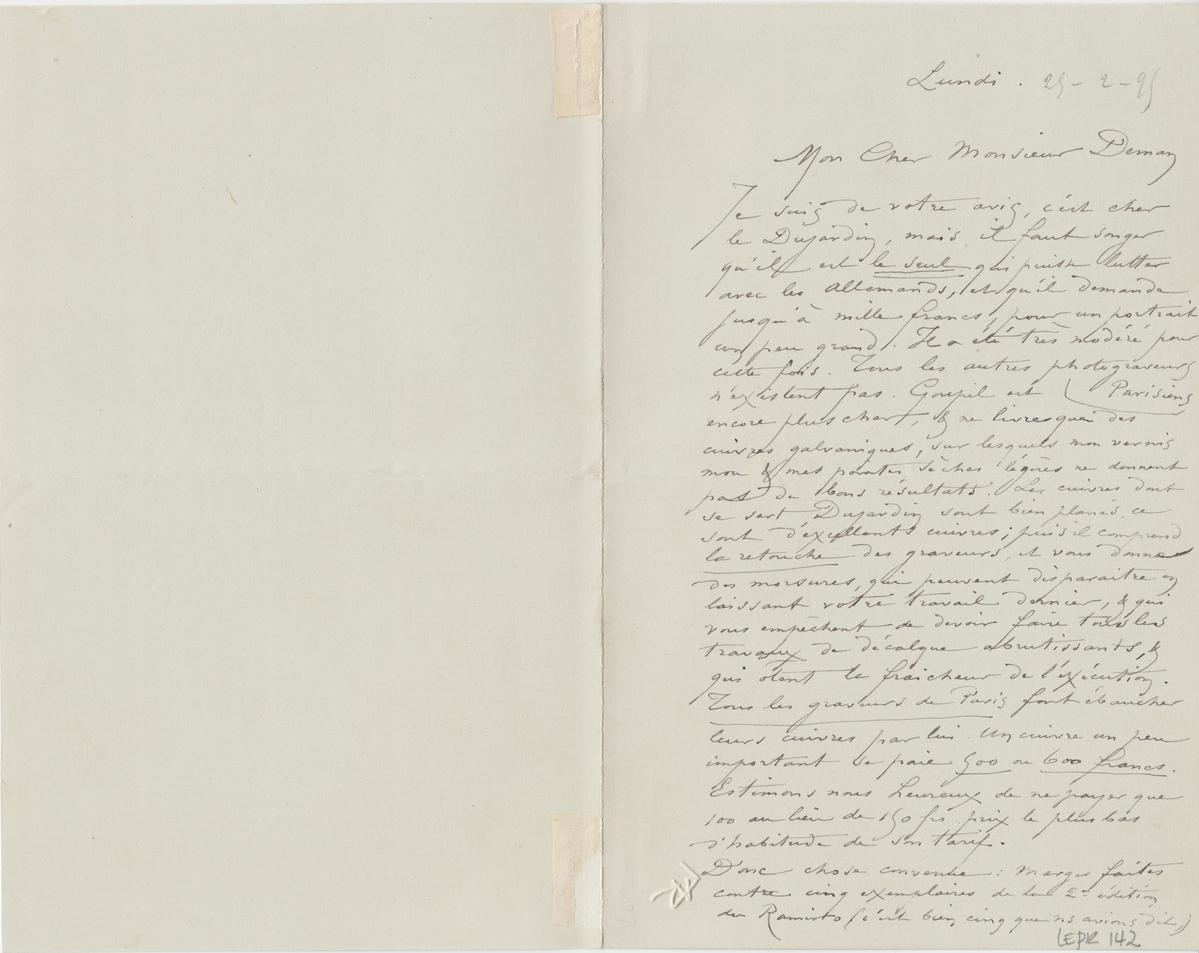 Lundi. 25-2-95
Mon Cher Monsieur Deman
Je suis de votre avis, c'est cher
le Dujardin, mais il faut songer
qu'il est le seul qui puisse lutter
avec les Allemands, et qu'il demande
jusqu'à mille francs, pour un portrait
un peu grand. Il a été très modéré pour
cette fois. Tous les autres photograveurs
Parisiens
n'existent pas. Goupil est
encore plus cher, & ne livre que des
cuivres galvaniques, sur lesquels mon vernis
mou & mes pointes sèches légères ne donnent
pas de bons résultats. Les cuivres dont
se sert Dujardin sont bien planés, ce
sont d'excellents cuivres; puis il comprend
la retouche des graveurs, et vous donne
des morsures, qui peuvent disparaitre en
laissant votre travail dernier, & qui
vous empêchent de devoir faire tous les
travaux de décalque abrutissants, &
qui otent la fraicheur de l'éxécution.
Tous les graveurs de Paris font ébaucher
leurs cuivres par lui. Un cuivre un peu
important se paie 500 ou 600 francs.
Estimons nous heureux de ne payer que
100 au lieu de 150 frs prix le plus bas
d'habitude de son tarif.
Donc chose convenue: marges faites
contre cinq exemplaires de la 2e édition
du Ramiro (c'est bien cinq que ns avions dit,)
LEPR 142